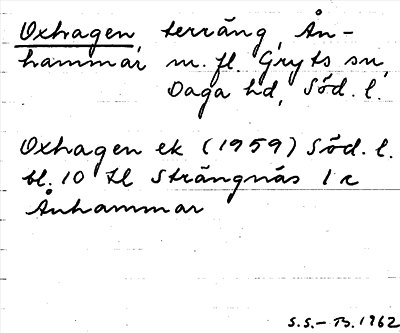 Oxhagen, terräng, Ån-
hammar m. fl. Gryts sn,
Daga hd, Söd. l.
Oxhagen ek (1959) Söd. l.
bl. 10 Strängnäs 1 c
Ånhammar
S.S.–B. 1962